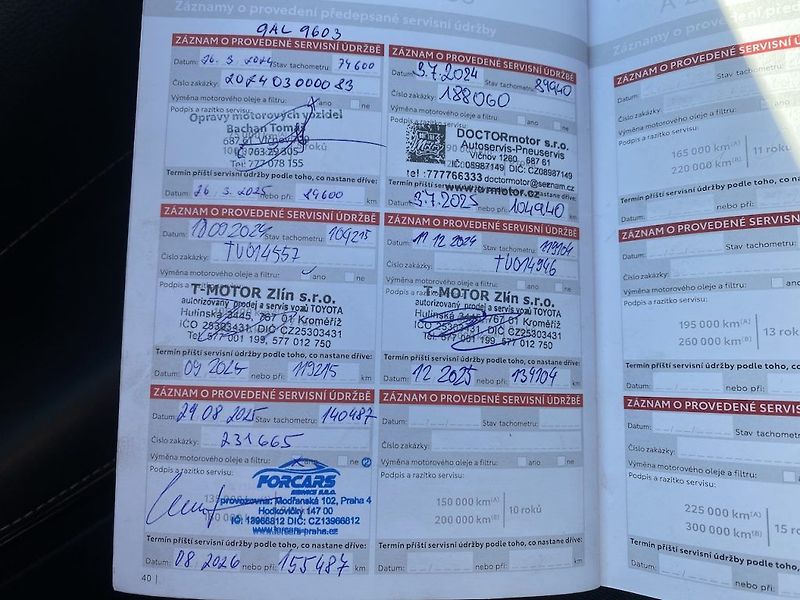 Záznamy o provedení předepsané servisní údržby
9AL 9603
ZÁZNAM O PROVEDENÉ SERVISNÍ ÚDRŽBĚ
Datum: 26. 3. 2024 Stav tachometru: 74600
Číslo zakázky: 20240300083
Výměna motorového oleje a filtru: ano ne
Podpis a razítko servisu:
Opravy motorových vozidel
Bachan Tomáš
687 61 Vlčnov
Tel: 777 078 155
Termín příští servisní údržby podle toho, co nastane dříve:
Datum: 26 3. 2025 nebo při: 84600 km
ZÁZNAM O PROVEDENÉ SERVISNÍ ÚDRŽBĚ
Datum: 3.7.2024 Stav tachometru: 89940
Číslo zakázky: 188060
Výměna motorového oleje a filtru: ano ne
Podpis a razítko servisu:
DOCTORmotor s.r.o.
Autoservis-Pneuservis
Vlčnov 1260, 687 61
IČ 08987149 DIČ: CZ08987149
tel :777766333 doctormotor@seznam.cz
Termín příští servisní údržby podle toho, co nastane dříve:
Datum: 3.7.2025 nebo při: 104940 km
ZÁZNAM O PROVEDENÉ SERVISNÍ ÚDRŽBĚ
Datum: 2024 Stav tachometru: 104215
Číslo zakázky: TU014557
Výměna motorového oleje a filtru: ano ne
Podpis a razítko servisu:
T-MOTOR Zlín s.r.o.
autorizovaný prodej a servis vozů TOYOTA
Hulínská 2445, 767 01 Kroměříž
IČO 25303431, DIČ CZ25303431
Tel. 577 001 199, 577 012 750
Termín příští servisní údržby podle toho, co nastane dříve:
Datum: 09 2024 nebo při: 119215 km
ZÁZNAM O PROVEDENÉ SERVISNÍ ÚDRŽBĚ
Datum: 11 12 2024 Stav tachometru: 119104
Číslo zakázky: TU014946
Výměna motorového oleje a filtru: ano ne
Podpis a razítko servisu:
T-MOTOR Zlín s.r.o.
autorizovaný prodej a servis vozů TOYOTA
Hulínská 2445, 767 01 Kroměříž
IČO 25303431, DIČ CZ25303431
Tel. 577 001 199, 577 012 750
Termín příští servisní údržby podle toho, co nastane dříve:
Datum: 12 2025 nebo při: 134104 km
ZÁZNAM O PROVEDENÉ SERVISNÍ ÚDRŽBĚ
Datum: 29 08 2025 Stav tachometru: 140487
Číslo zakázky: 231665
Výměna motorového oleje a filtru: ano ne
Podpis a razítko servisu:
FORCARS
SERVICE s.r.o.
provozovna: Modřanská 102, Praha 4
Hodkovičky 147 00
IČ: 13966812 DIČ: CZ13966812
www.forcars-praha.cz
Termín příští servisní údržby podle toho, co nastane dříve:
Datum: 08 2026 nebo při: 155487 km
ZÁZNAM O PROVEDENÉ SERVISNÍ ÚDRŽBĚ
Datum: Stav tachometru: km
Číslo zakázky:
Výměna motorového oleje a filtru: ano ne
Podpis a razítko servisu:
150 000 km(A)
200 000 km(B)
10 roků
Termín příští servisní údržby podle toho, co nastane dříve:
Datum: nebo při: km
40
ZÁZNAM O PROVEDENÉ SERVISNÍ
Datum: Stav tachometru:
Číslo zakázky:
Výměna motorového oleje a filtru:
Podpis a razítko servisu:
165 000 km(A)
220 000 km(B)
11 roků
Termín příští servisní údržby podle toho, co nastane
Datum: nebo při:
ZÁZNAM O PROVEDENÉ SERVISNÍ
Datum: Stav tachometru:
Číslo zakázky:
Výměna motorového oleje a filtru:
Podpis a razítko servisu:
195 000 km(A)
260 000 km(B)
13 rok
Termín příští servisní údržby podle toho, co nastane
Datum: nebo při:
ZÁZNAM O PROVEDENÉ SERVISNÍ
Datum: Stav tachometru:
Číslo zakázky:
Výměna motorového oleje a filtru:
Podpis a razítko servisu:
225 000 km(A)
300 000 km(B)
15 ro
Termín příští servisní údržby podle toho, co nastane
Datum: nebo při: